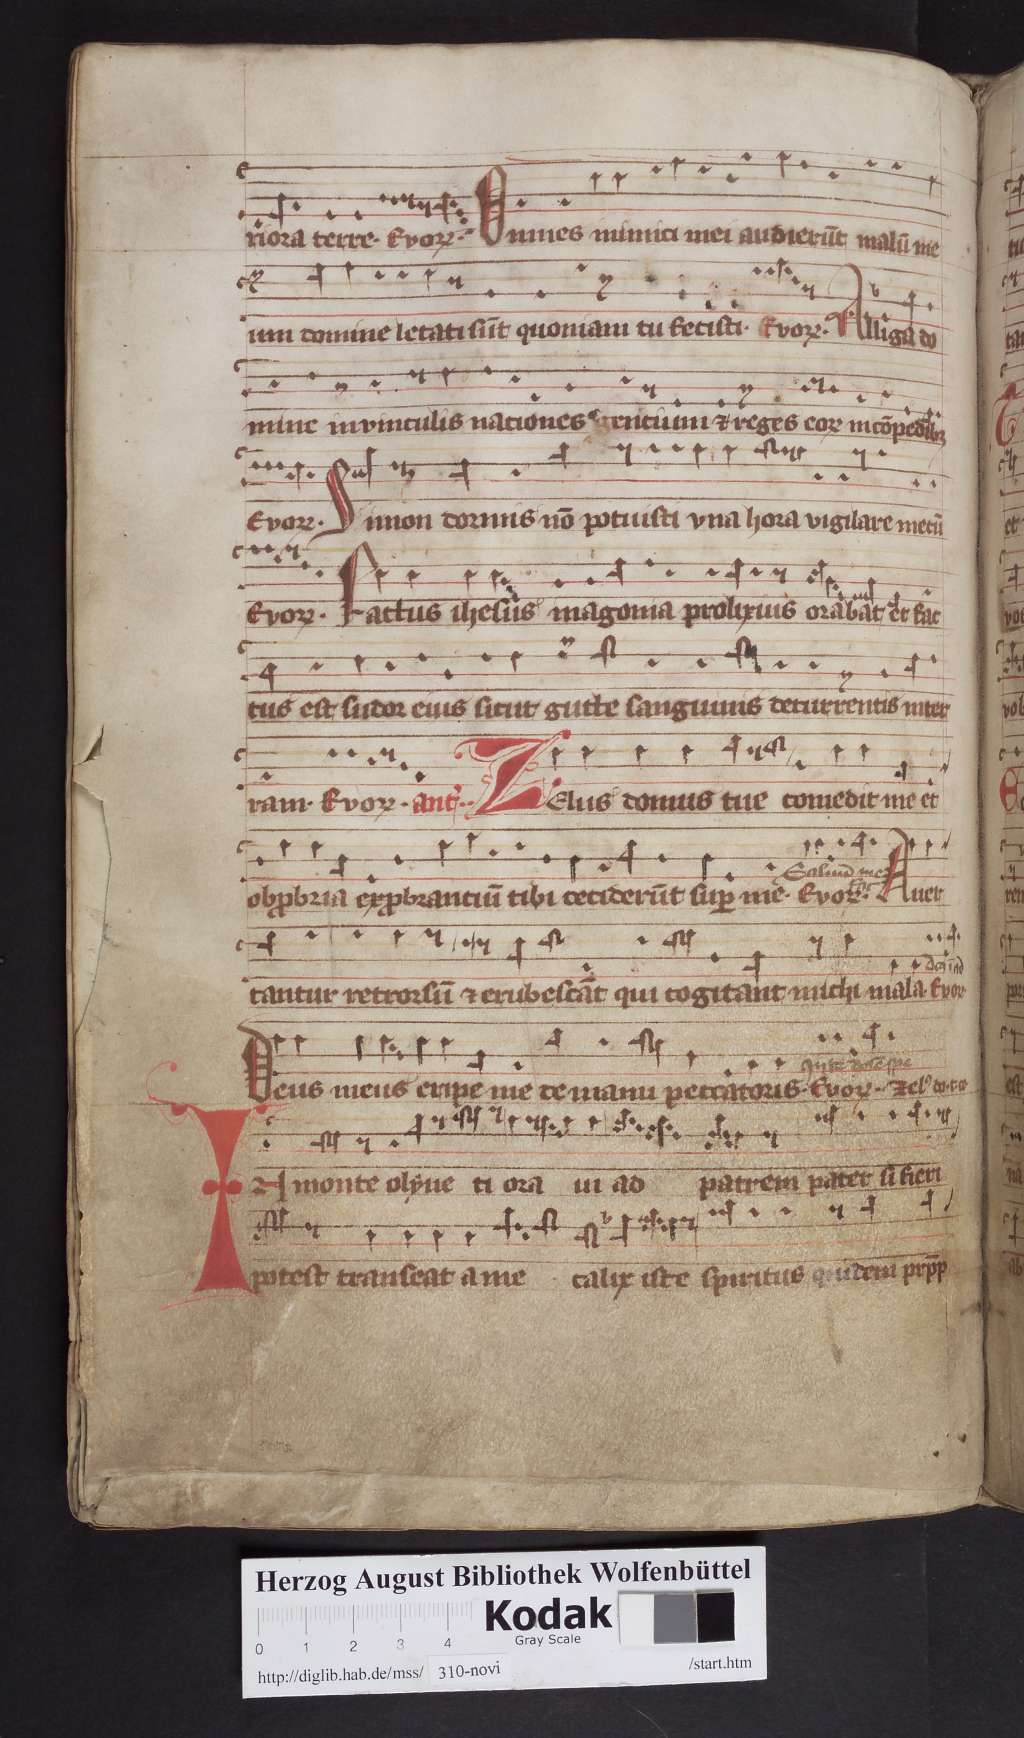 riora terre. Evoꝝ. Omnes inimici mei audierūt malū me
um domine letati sūt quoniam tu fecisti. Evoꝝ. Alliga do
mine in vinculis nationes gencium ⁊ reges eoꝝ in cōpedibꝫ
Evoꝝ. Simon dormis nō potuisti vna hora vigilare mecū
Evoꝝ. Factus ihesus in agonia prolixius orabat et fac
tus est sudor eius sicut gutte sanguinis decurrentis in ter
ram. Evoꝝ. ant. Zelus domus tue comedit me et
obꝓbria exꝓbrantiū tibi ceciderūt suꝑ me. Evoꝝ. Auer
Saluū me
tantur retrorsū ⁊ erubescāt qui cogitant michi mala. Evoꝝ
Deus meus eripe me de manu peccatoris. Evoꝝ. Zelꝰ do. t.
In monte olyue ti ora ui ad patrem pater si fieri
potest transeat a me calix iste spiritus quidem prp̄
Herzog August Bibliothek Wolfenbüttel
0 1 2 3 4
Kodak
Gray Scale
http://diglib.hab.de/mss/ 310-novi /start.htm